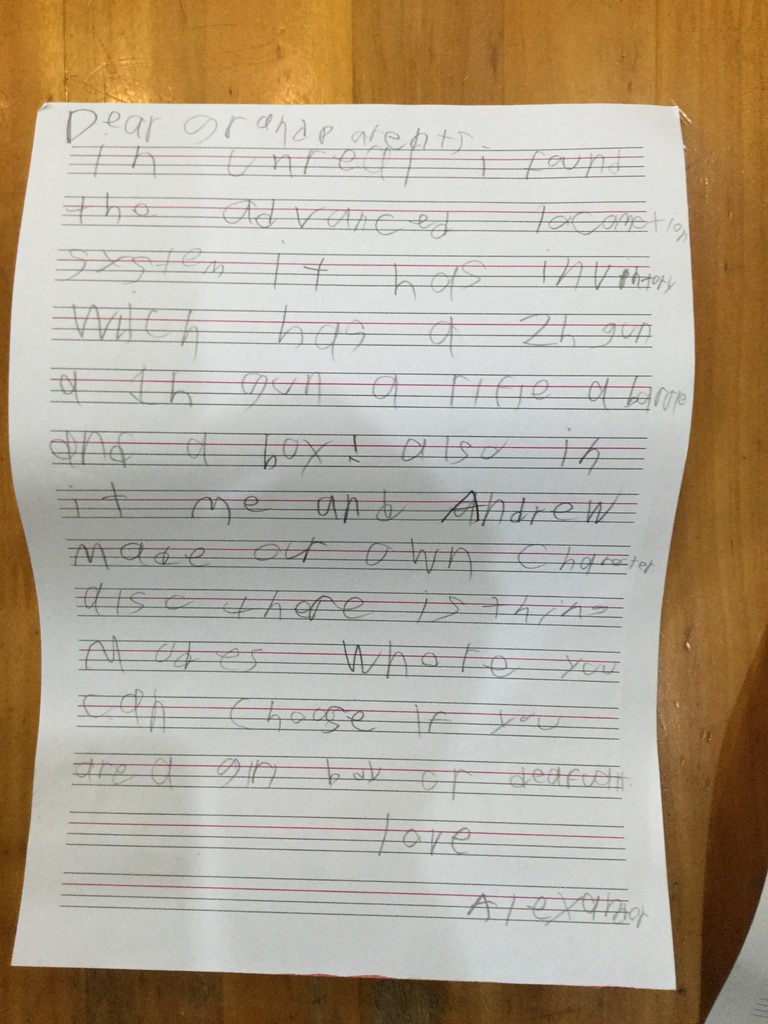 Dear Grandparents,
In unreal i found
the advanced locomotion
system It has inventory
Wich has a 2h gun
a 1h gun a rifle a barrle
and a box! also in
it me and Andrew
made our own Character
also there is thing
Modes Where you
can choose if you
are a box or
love
Alexander